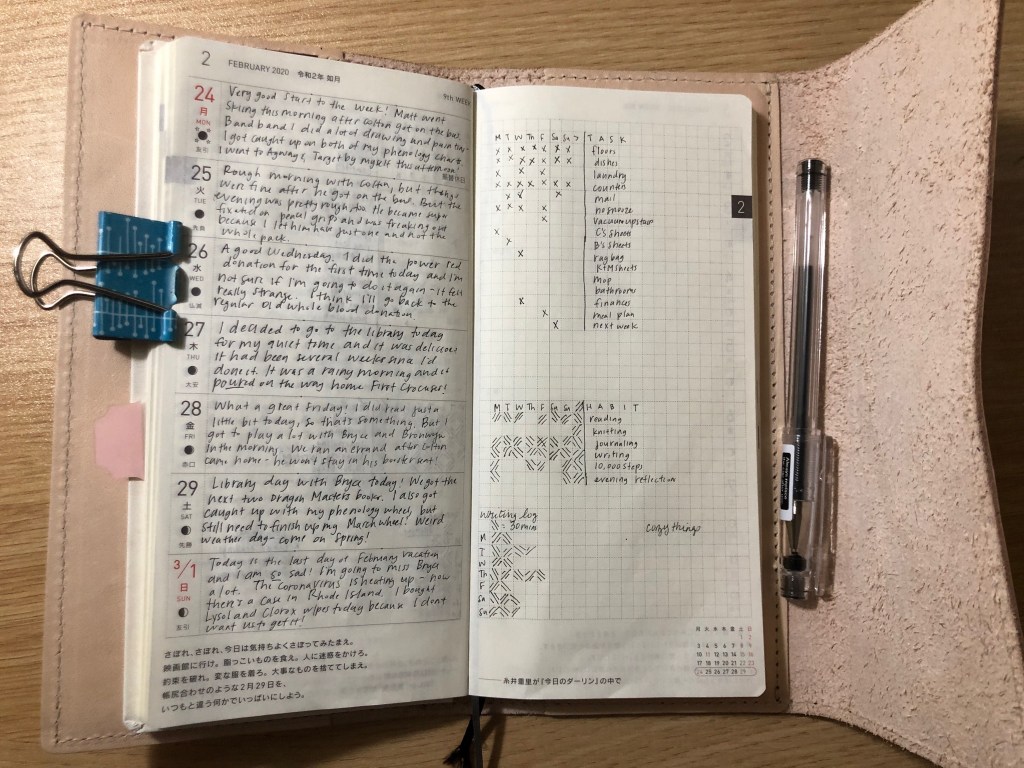 2 FEBRUARY 2020 令和2年 如月
9th WEEK
24 月 MON 友引
Very good start to the week! Matt went
skiing this morning after Colton got on the bus.
B and I did a lot of drawing and painting.
I got caught up on both of my phenology charts.
I went to Agway, Target by myself this afternoon!
25 火 TUE 先負
振替休日
Rough morning with Colton, but things
were fine after he got on the bus. But the
evening was pretty rough too. He became super
fixated on pencil grips and was freaking out
because I let him have just one and not the
whole pack.
26 水 WED 仏滅
A good Wednesday. I did the power red
donation for the first time today and I'm
not sure if I'm going to do it again - it felt
really strange. I think I'll go back to the
regular old whole blood donation
27 木 THU 大安
I decided to go to the library today
for my quiet time and it was delicious
It had been several weeks since I'd
done it. It was a rainy morning and it
poured on the way home. First Crocuses!
28 金 FRI 赤口
What a great Friday! I did read just a
little bit today, so that's something. But I
got to play a lot with Bryce and Bronwyn
in the morning. We ran an errand after Colton
came home - he won't stay in his booster seat!
29 土 SAT 先勝
Library day with Bryce today! We got the
next two Dragon Masters books. I also got
caught up with my phenology wheel, but
still need to finish up my March wheel! Weird
weather day - come on Spring!
3/1 日 SUN 友引
Today is the last day of February vacation
and I am so sad! I'm going to miss Bryce
a lot. The Coronavirus is heating up - now
there's a case in Rhode Island. I bought
Lysol and Clorox wipes today because I don't
want us to get it!
さぼれ、さぼれ、今日は気持ちよくさぼってみたまえ。
映画館に行け。脂っこいものを食え。人に迷惑をかけろ。
約束を破れ。変な服を着ろ。大事なものを捨ててしまえ。
帳尻合わせのような2月29日を、
いつもと違う何かでいっぱいにしよう。
M T W Th F Sa Su > TASK
x x x x x x x floors
x x x x x x x dishes
x x x laundry
x x x x x x x counters
x x x mail
x x x x no snooze
x vacuum upstairs
x C's sheets
x B's sheets
x rag bag
K+M sheets
mop
bathrooms
x finances
x meal plan
x next week
2
M T W Th F Sa Su HABIT
reading
knitting
journaling
writing
10,000 steps
evening reflection
writing log
= 30 min
cozy things
M
T
W
Th
F
Sa
Su
月 火 水 木 金 土 日
1 2
3 4 5 6 7 8 9
10 11 12 13 14 15 16
17 18 19 20 21 22 23
24 25 26 27 28 29 1
──糸井重里が『今日のダーリン』の中で